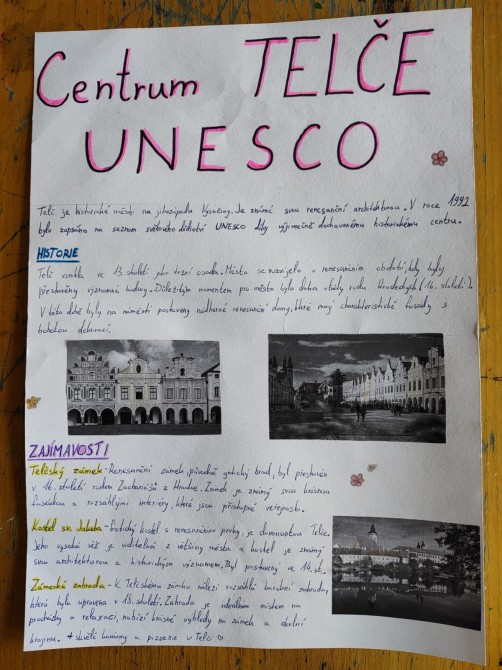 Centrum TELČE
UNESCO
Telč je historické město na jihozápadu Vysočiny. Je známé svou renesanční architekturou. V roce 1992
bylo zapsáno na seznam světového dědictví UNESCO díky výjimečně dochovanému historickému centru.
HISTORIE
Telč vznikla ve 13. století jako tržní osada. Město se rozvíjelo v renesančním období, kdy byly
přestavěny významné budovy. Důležitým momentem pro město byla doba vlády rodu Hradeckých (16. století).
V této době byly na náměstí postaveny nádherné renesanční domy, které mají charakteristické fasády s
bohatou dekorací.
ZAJÍMAVOSTI
Telčský zámek - Renesanční zámek, původně gotický hrad, byl přestavěn
v 16. století rodem Zachariášů z Hradce. Zámek je známý svou krásnou
fasádou a rozsáhlými interiéry, které jsou přístupné veřejnosti.
Kostel sv. Jakuba - Gotický kostel s renesančními prvky, je dominantou Telče.
Jeho vysoká věž je viditelná z většiny města a kostel je známý
svou architekturou a historickým významem. Byl postavený ve 14. st.
Zámecká zahrada - K Telčskému zámku náleží rozsáhlá barokní zahrada,
která byla upravena v 18. století. Zahrada je ideálním místem na
procházky a relaxaci, nabízí krásné výhledy na zámek a okolní
krajinu. + skvělé kavárny a pizzerie v Telči